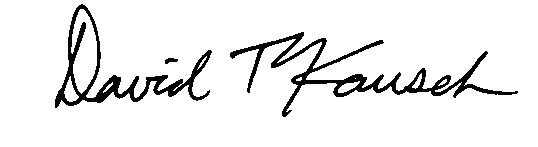 David T Kausch